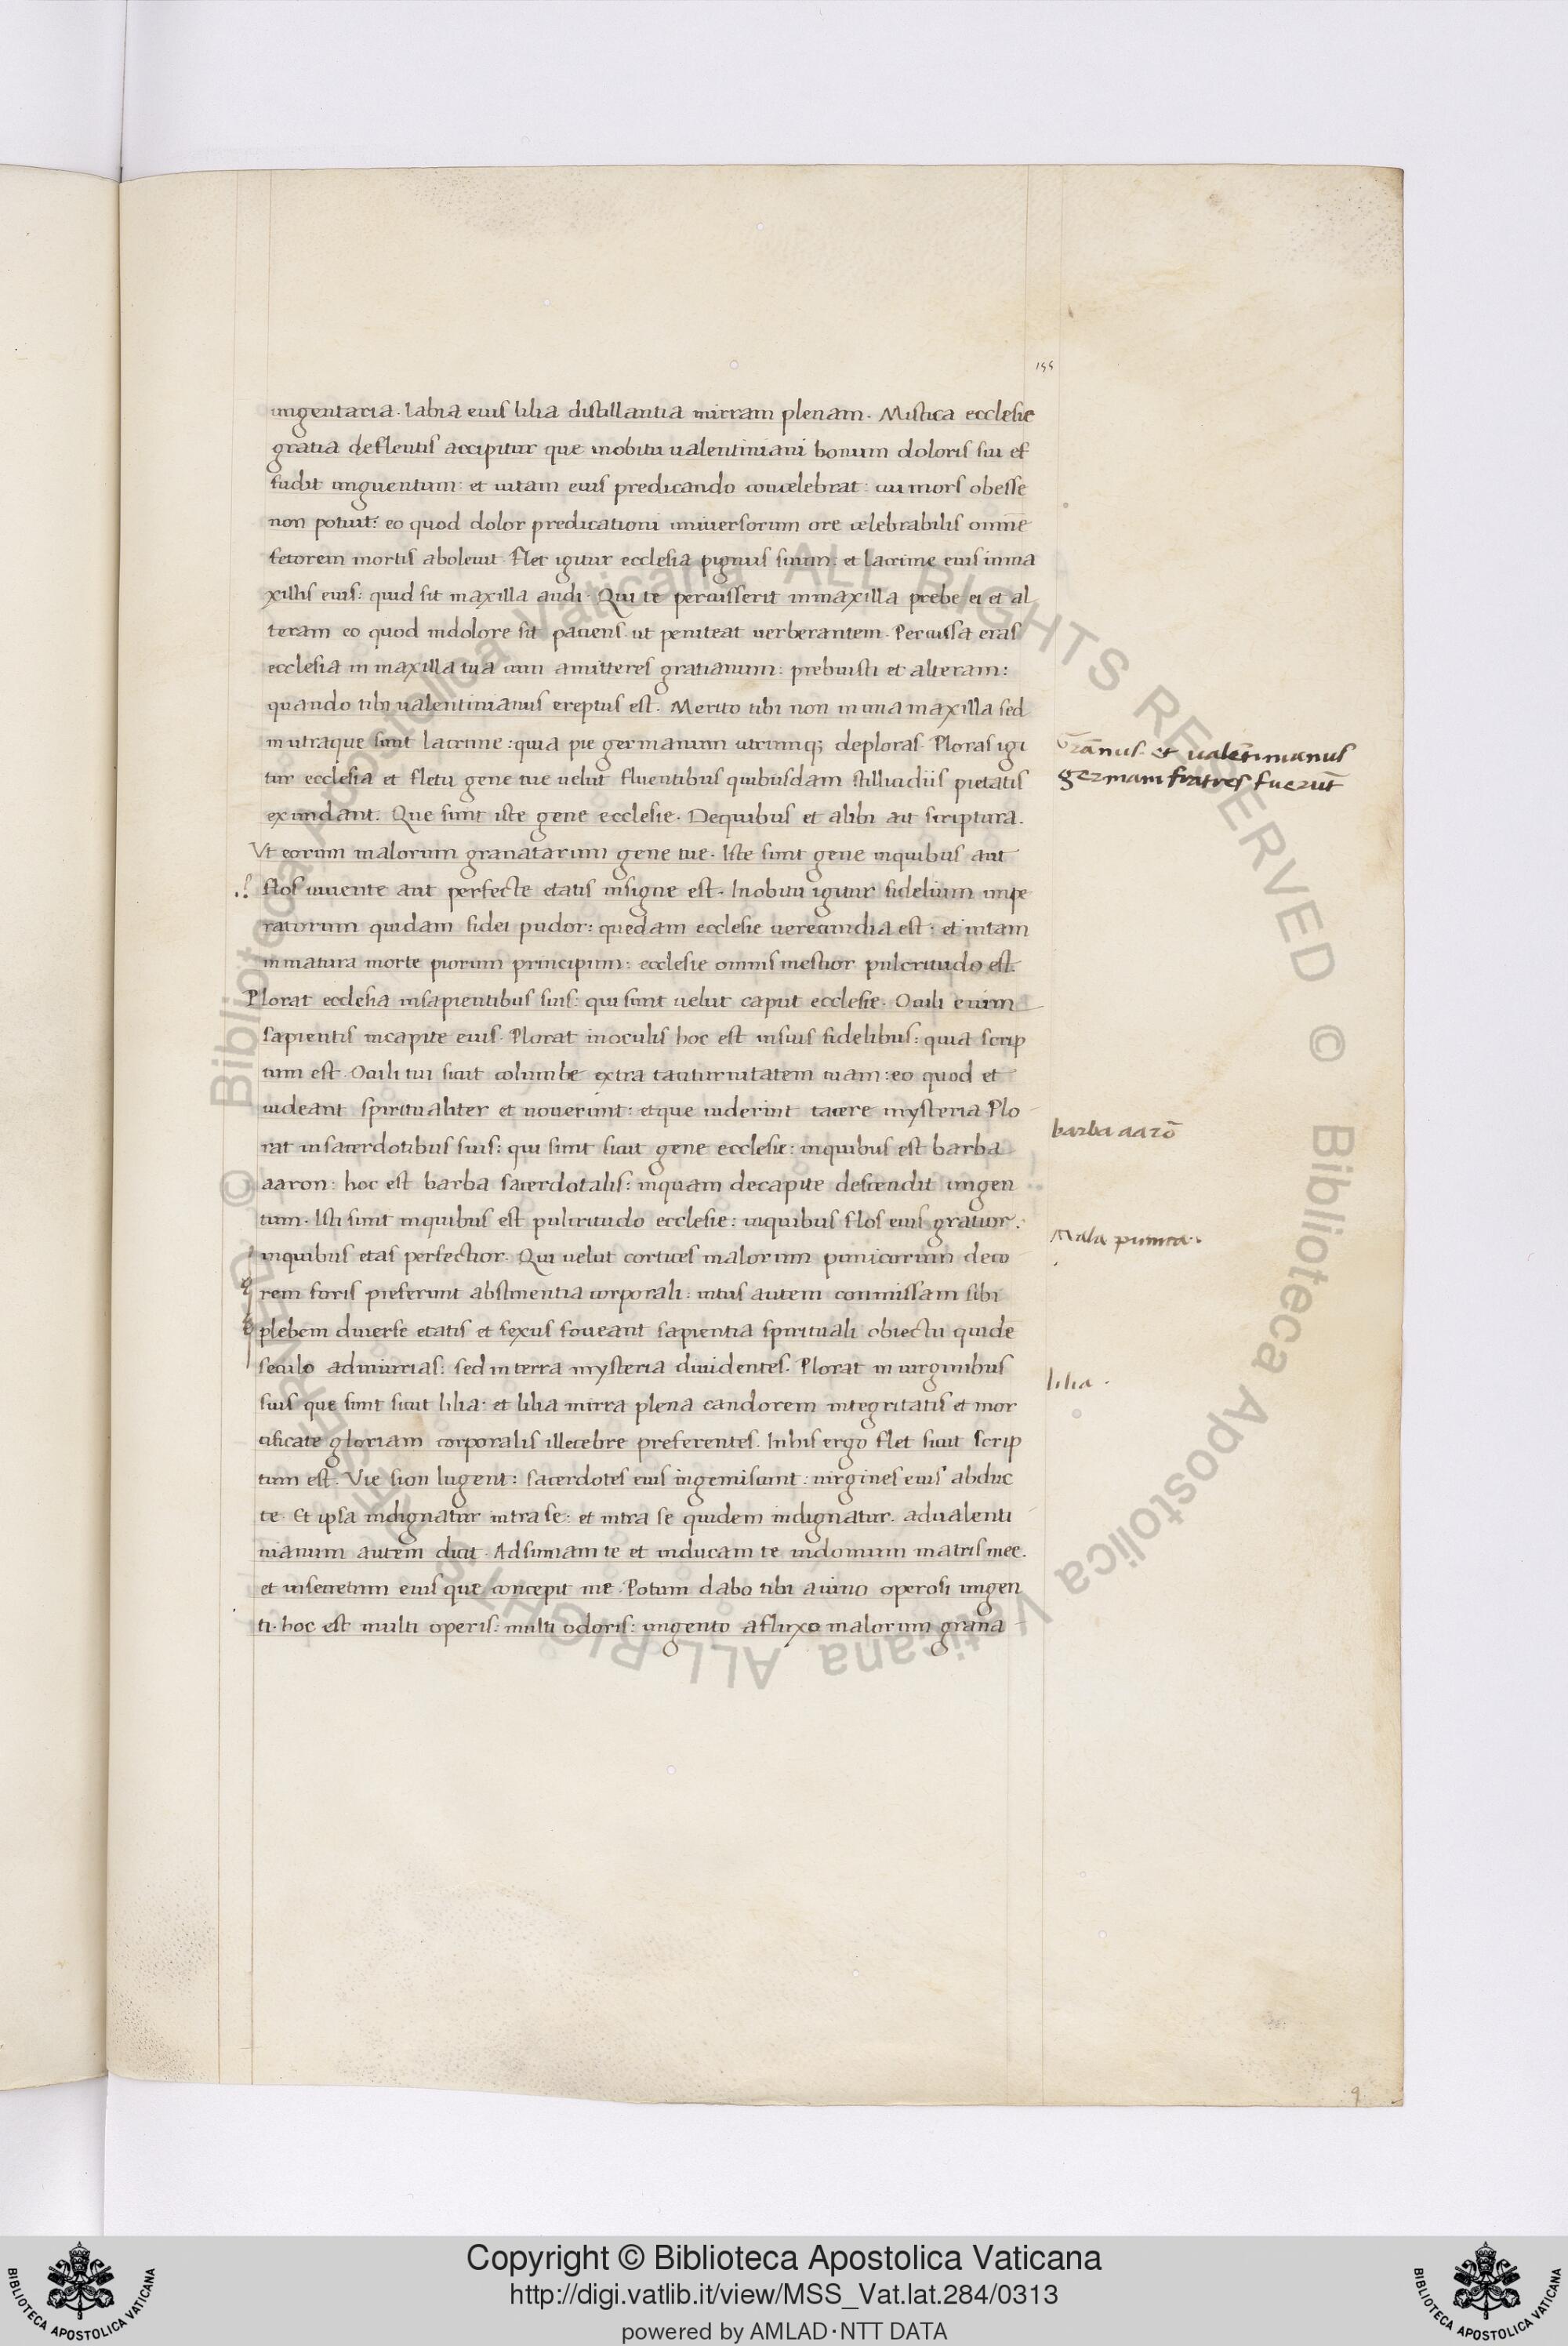 155
ungentaria. labia eius lilia distillantia mirram plenam. Mistica ecclesie
gratia deflentis accipitur que inobitu ualentiniani bonum doloris sui ef
fudit unguentum: et uitam eius predicando concelebrat: cui mors obesse
non potuit: eo quod dolor predicationi uniuersorum ore celebrabilis omnē
fetorem mortis aboleuit. flet igitur ecclesia pignus suum: et lacrime eius inma
xillis eius: quid sit maxilla audi. Qui te percusserit inmaxilla prebe ei et al
teram eo quod indolore sit patiens ut peniteat uerberantem. Percussa eras
ecclesia in maxilla tua cum amitteres gratianum: prebuisti et alteram:
quando tibi ualentinianus ereptus est. Merito tibi non in una maxilla sed
in utraque sunt lacrime: quia pie germanum utrumq; deploras. Ploras igi
tur ecclesia et fletu gene tue uelut fluentibus quibusdam stillicidiis pietatis
exundant. Que sunt iste gene ecclesie. Dequibus et alibi ait scriptura.
Vt eorum malorum granatarum gene tue. Iste sunt gene inquibus aut
flos iuuente aut perfecte etatis insigne est. Inobitu igitur fidelium impe
ratorum quidam fidei pudor: quedam ecclesie uerecundia est: et intam
inmatura morte piorum principum: ecclesie omnis mestior pulcritudo est.
Plorat ecclesia insapientibus suis: qui sunt uelut caput ecclesie. Oculi enim
sapientis incapite eius. Plorat inoculis hoc est insuis fidelibus: quia scrip
tum est. Oculi tui sicut columbe extra taciturnitatem tuam: eo quod et
uideant spiritualiter et nouerint: etque uiderint tacere mysteria. Plo
rat insacerdotibus suis: qui sunt sicut gene ecclesie: inquibus est barba
aaron: hoc est barba sacerdotalis: inquam decapite descendit ungen
tum. Isti sunt inquibus est pulcritudo ecclesie: inquibus flos eius gratior.
inquibus etas perfectior. Qui uelut cortices malorum punicorum deco
rem foris preferunt abstinentia corporali: intus autem commissam sibi
plebem diuerse etatis et sexus foueant sapientia spirituali obiectu quidē
seculo adiniurias: sed interra mysteria diuidentes. Plorat in uirginibus
suis que sunt sicut lilia: et lilia mirra plena candorem integritatis et mor
tificate gloriam corporalis illecebre preferentes. Inhis ergo flet sicut scrip
tum est. Vie sion lugent: sacerdotes eius ingemiscunt: uirgines eius abduc
te. Et ipsa indignatur intra se: et intra se quidem indignatur. adualenti
nianum autem dicit. Adsumam te et inducam te indomum matris mee.
et insecretum eius que concepit me. Potum dabo tibi auino operosi ungen
ti. hoc est multi operis: multi odoris: ungento afluxo malorum grana
Grānus et ualētinianus
germani fratres fuerūt
barba aarō
Mala punica.
lilia.
9
Copyright © Biblioteca Apostolica Vaticana
http://digi.vatlib.it/view/MSS_Vat.lat.284/0313
powered by AMLAD·NTT DATA
BIBLIOTECA APOSTOLICA VATICANA
BIBLIOTECA APOSTOLICA VATICANA
© Biblioteca Apostolica Vaticana ALL RIGHTS RESERVED © Biblioteca Apostolica Vaticana ALL RIGHTS RESERVED